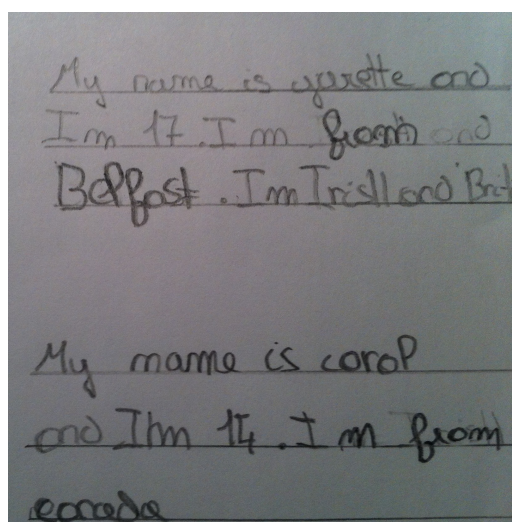 My name is yvrette and
Im 17. I m from and
Belfast. Im Irish and Brit
My mame is corol
and I'm 14. I m from
conada